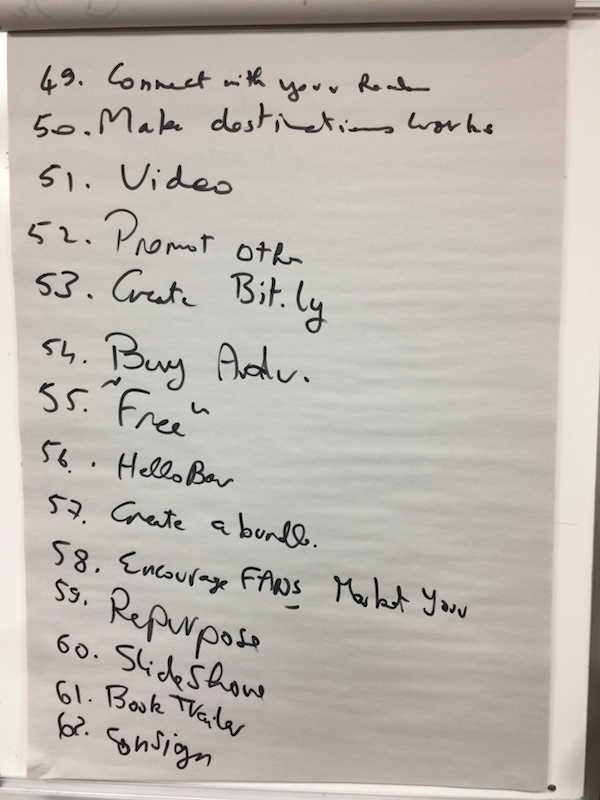 49. Connect with your Reader
50. Make destinations works
51. Video
52. Promot other
53. Create Bit.ly
54. Buy Adv.
55. "Free"
56. HelloBar
57. Create a bundle.
58. Encourage FANS Market Your
59. Repurpose
60. SlideShare
61. Book Trailer
62. Consign